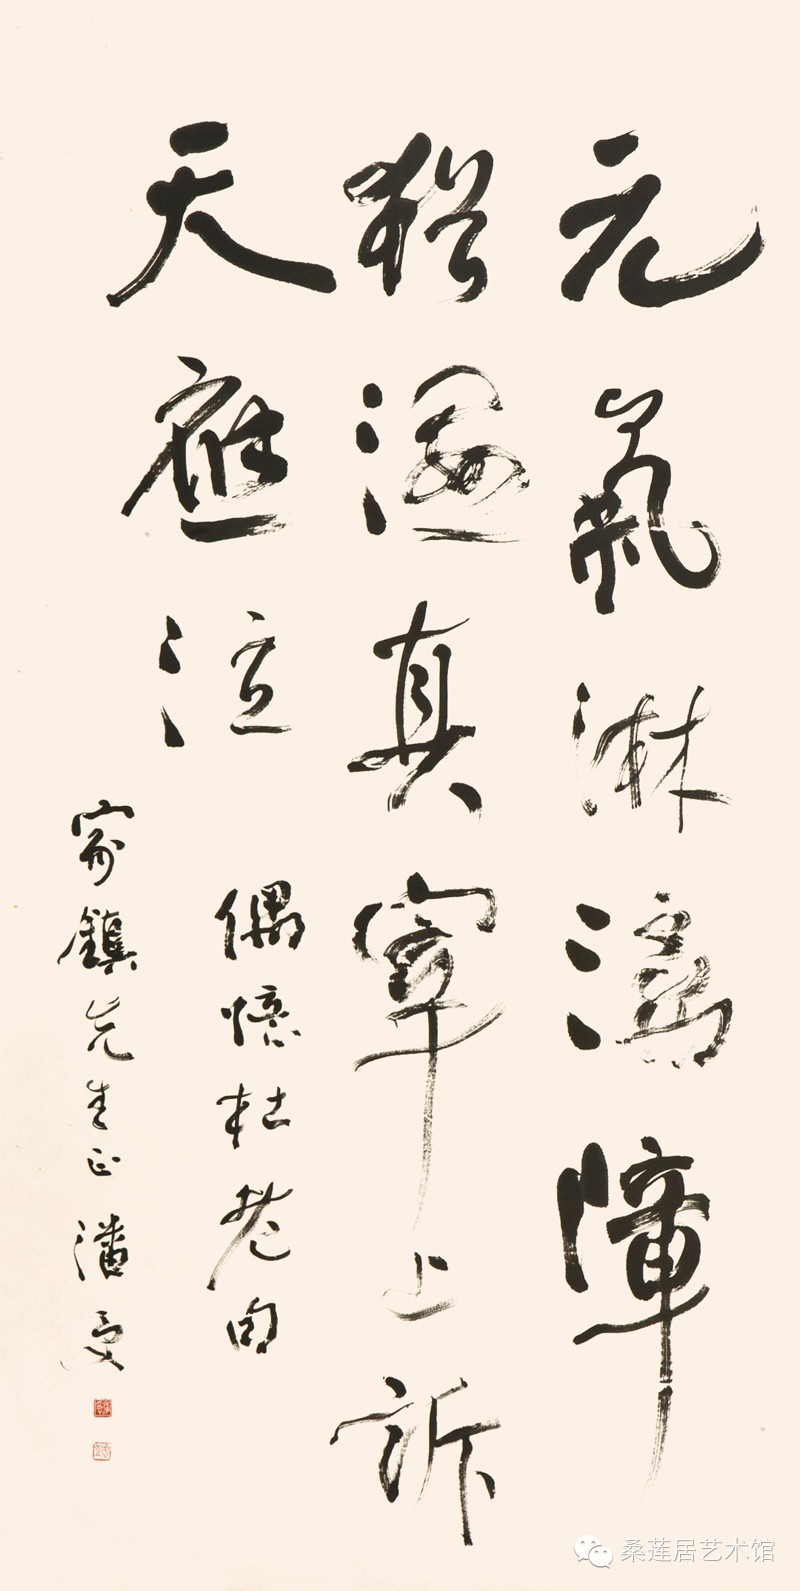 元氣淋漓障
猶溼真宰上訴
天應泣
偶憶杜老句
家鎮先生正 潘受
桑莲居艺术馆